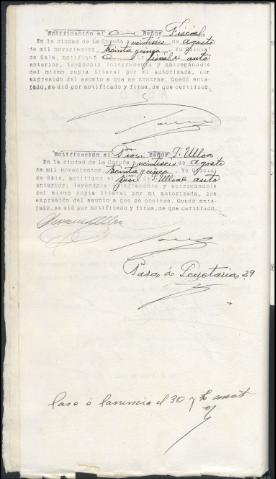 Notificación al Señor Fiscal
En la ciudad de La Coruña a veintiseis de agosto
de mil novecientos treinta y cinco, yo Oficial
de Sala, notifiqué el auto
anterior, leyéndole íntegramente y entregándole
del mismo copia literal por mí autorizada, con
expresión del asunto a que se contrae. Quedó ente-
rado, se dió por notificado y firma, de que certifico.
Notificación al Proc. Señor J. Ulloa
En la ciudad de La Coruña a veintiseis de agosto
de mil novecientos treinta y cinco yo Oficial
de Sala, notifiqué al Sr. Ulloa el auto
anterior, leyéndole íntegramente y entregándole
del mismo copia literal por mí autorizada, con
expresión del asunto a que se contrae. Quedó ente-
rado, se dió por notificado y firma, de que certifico.
Pasa á Secretaria 29
Paso á el 30